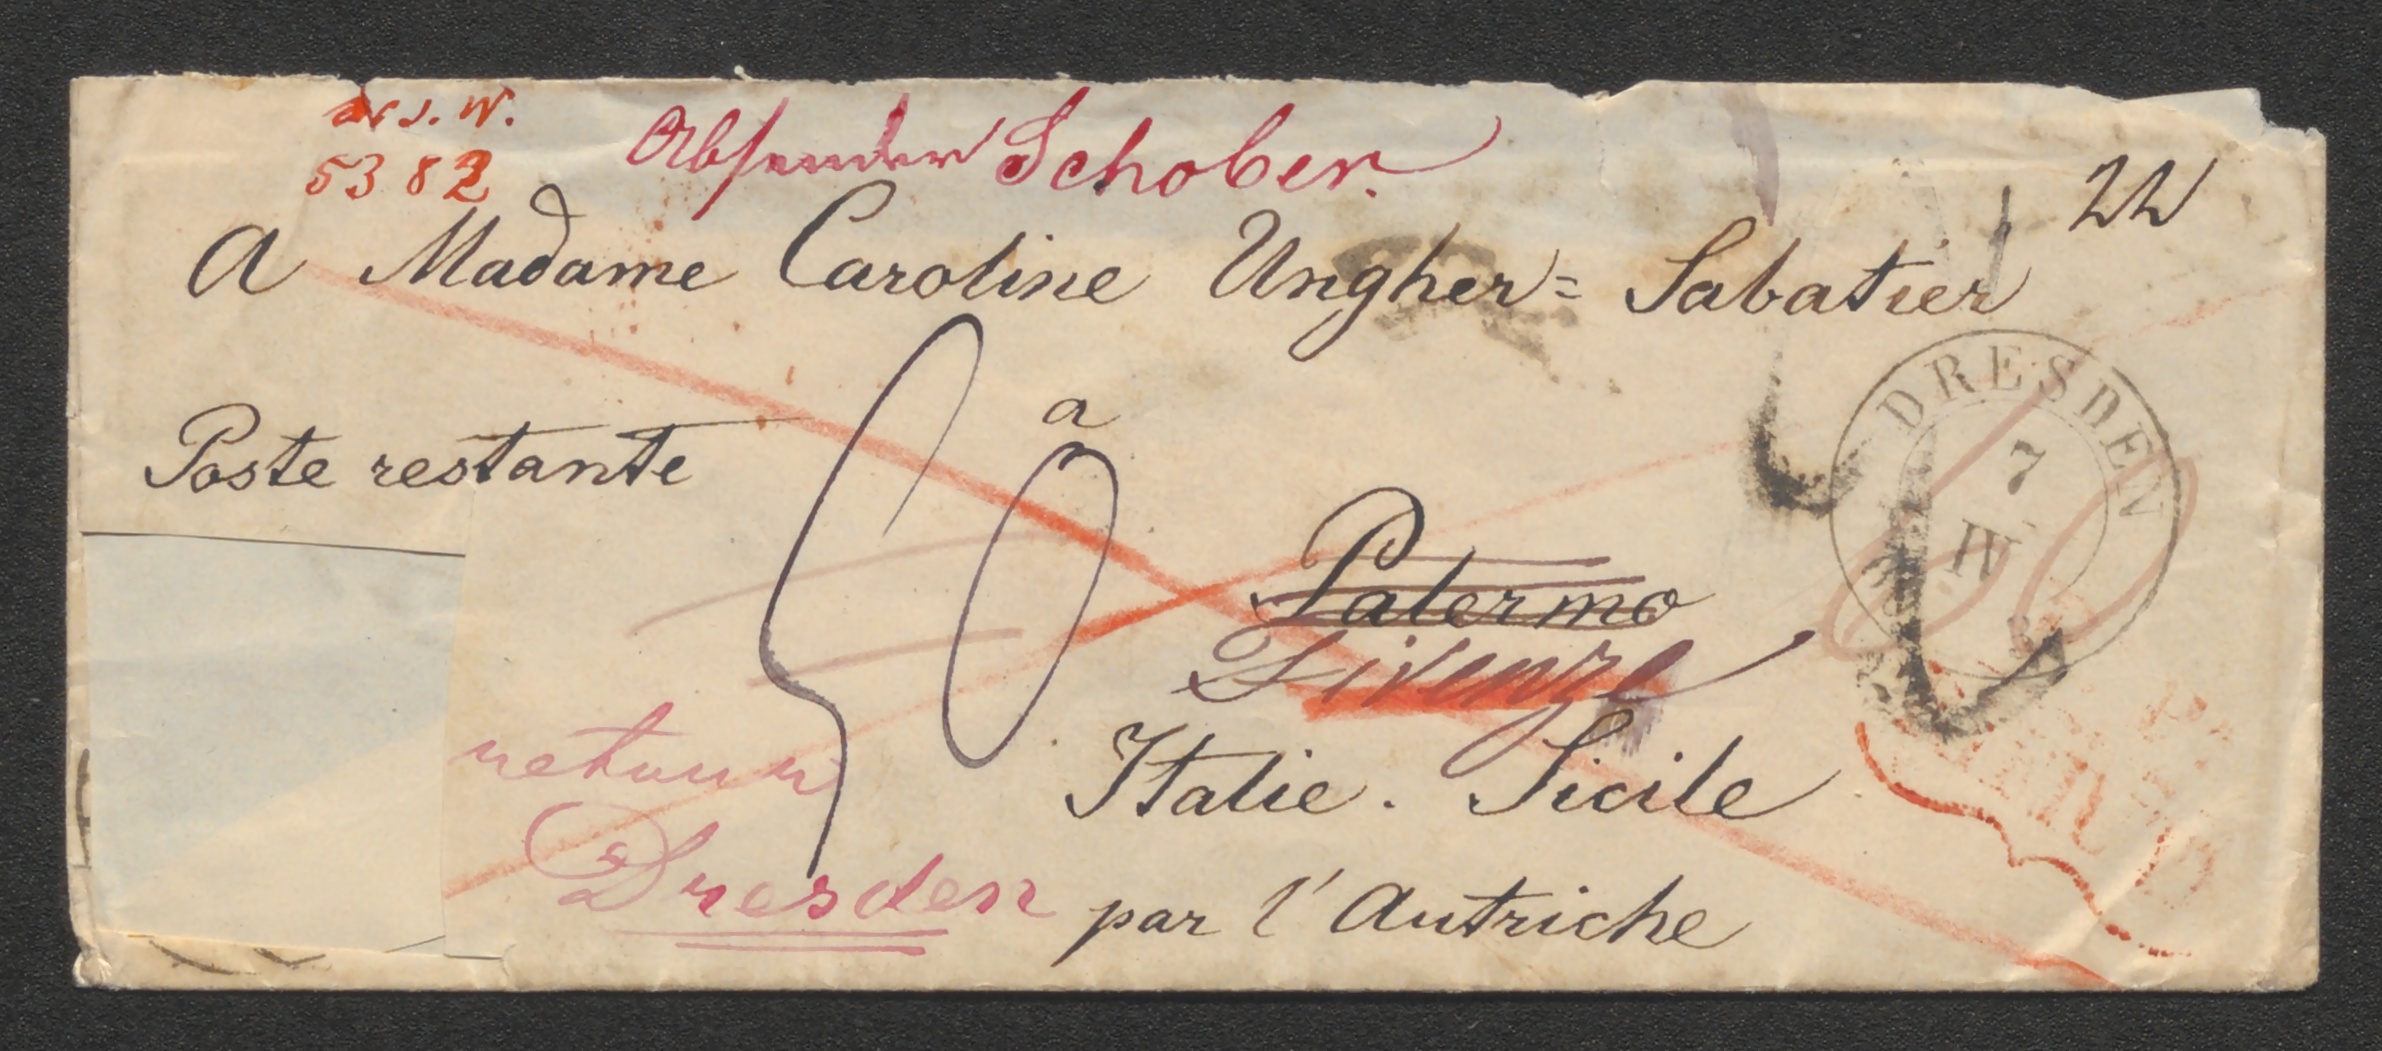 5382
Absender Schober.
22
A Madame Caroline Ungher= Sabatier
Poste restante
à
Palermo
Firenze
Italie. Sicile
par l'Autriche
retour
Dresden
DRESDEN
7
IV